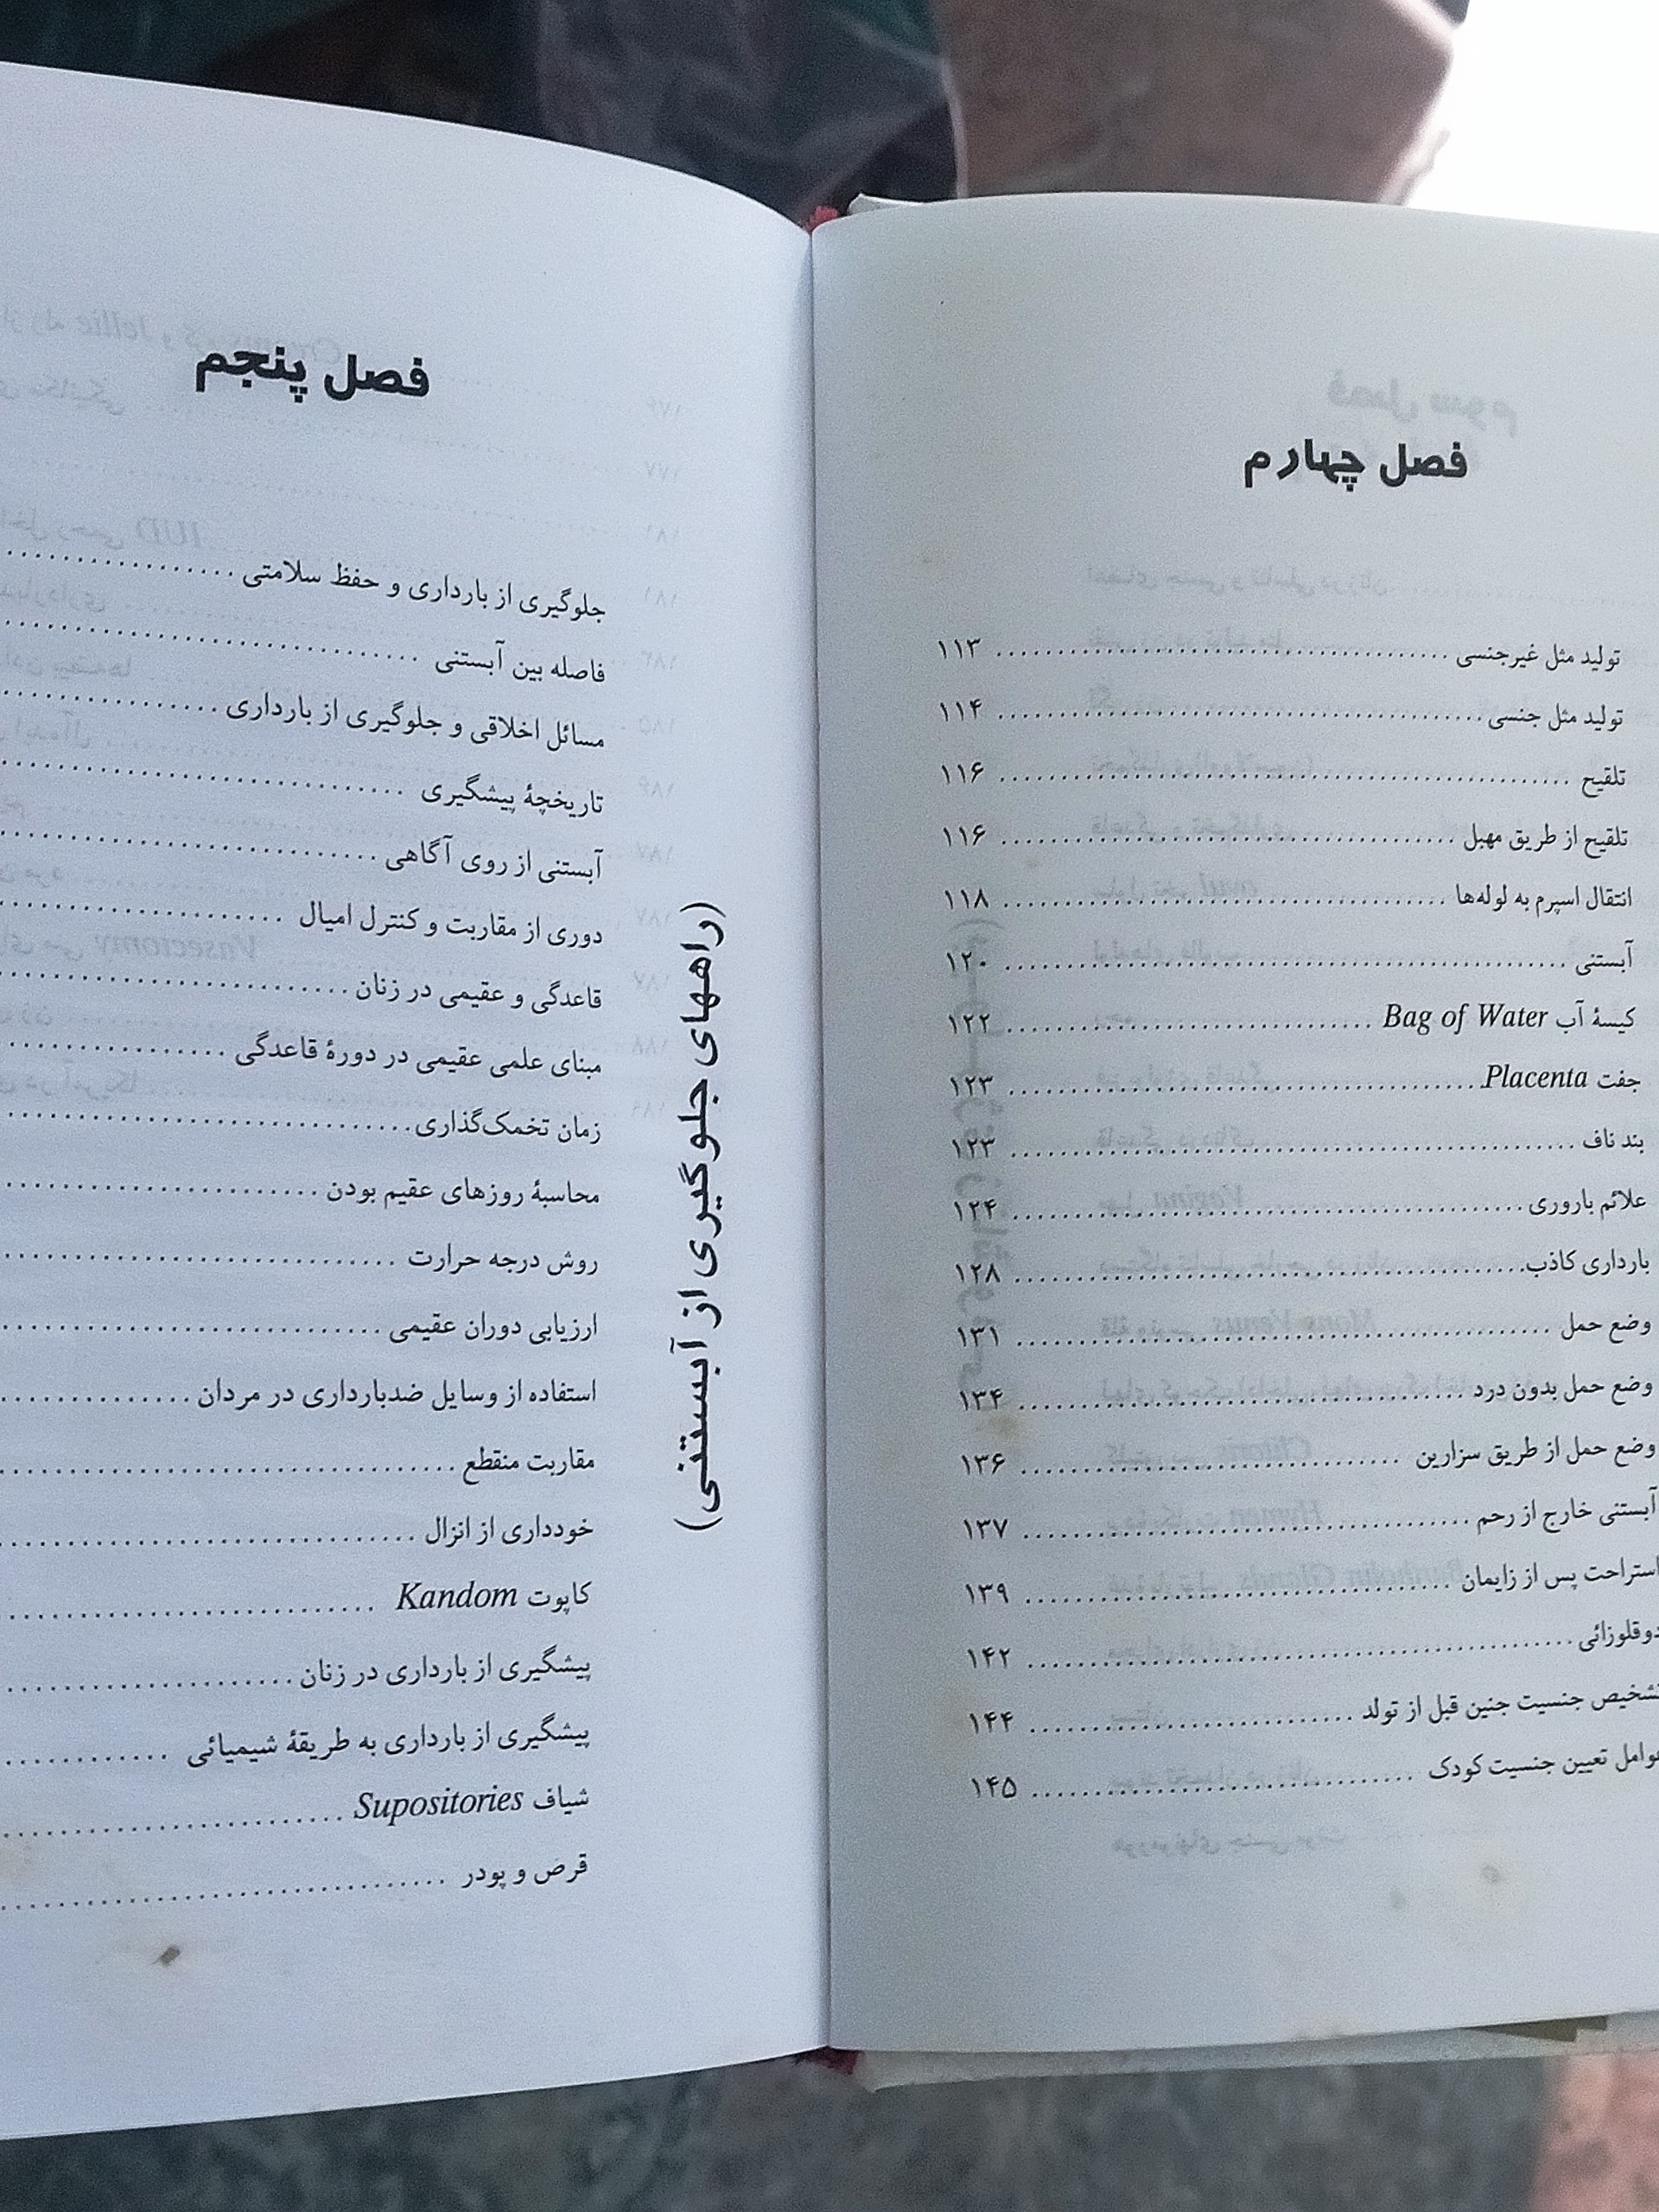 فصل چهارم
تولید مثل غیرجنسی ........ ۱۱۳
تولید مثل جنسی ........ ۱۱۴
تلقیح ........ ۱۱۶
تلقیح از طریق مهبل ........ ۱۱۶
انتقال اسپرم به لوله‌ها ........ ۱۱۸
آبستنی ........ ۱۲۰
کیسۀ آب Bag of Water ........ ۱۲۲
جفت Placenta ........ ۱۲۳
بند ناف ........ ۱۲۳
علائم باروری ........ ۱۲۴
بارداری کاذب ........ ۱۲۸
وضع حمل ........ ۱۳۱
وضع حمل بدون درد ........ ۱۳۴
وضع حمل از طریق سزارین ........ ۱۳۶
آبستنی خارج از رحم ........ ۱۳۷
استراحت پس از زایمان ........ ۱۳۹
دوقلوزائی ........ ۱۴۲
تشخیص جنسیت جنین قبل از تولد ........ ۱۴۴
عوامل تعیین جنسیت کودک ........ ۱۴۵
فصل پنجم
(راههای جلوگیری از آبستنی)
جلوگیری از بارداری و حفظ سلامتی ........
فاصله بین آبستنی ........
مسائل اخلاقی و جلوگیری از بارداری ........
تاریخچۀ پیشگیری ........
آبستنی از روی آگاهی ........
دوری از مقاربت و کنترل امیال ........
قاعدگی و عقیمی در زنان ........
مبنای علمی عقیمی در دورۀ قاعدگی ........
زمان تخمک‌گذاری ........
محاسبۀ روزهای عقیم بودن ........
روش درجه حرارت ........
ارزیابی دوران عقیمی ........
استفاده از وسایل ضدبارداری در مردان ........
مقاربت منقطع ........
خودداری از انزال ........
کاپوت Kandom ........
پیشگیری از بارداری در زنان ........
پیشگیری از بارداری به طریقۀ شیمیائی ........
شیاف Supositories ........
قرص و پودر ........